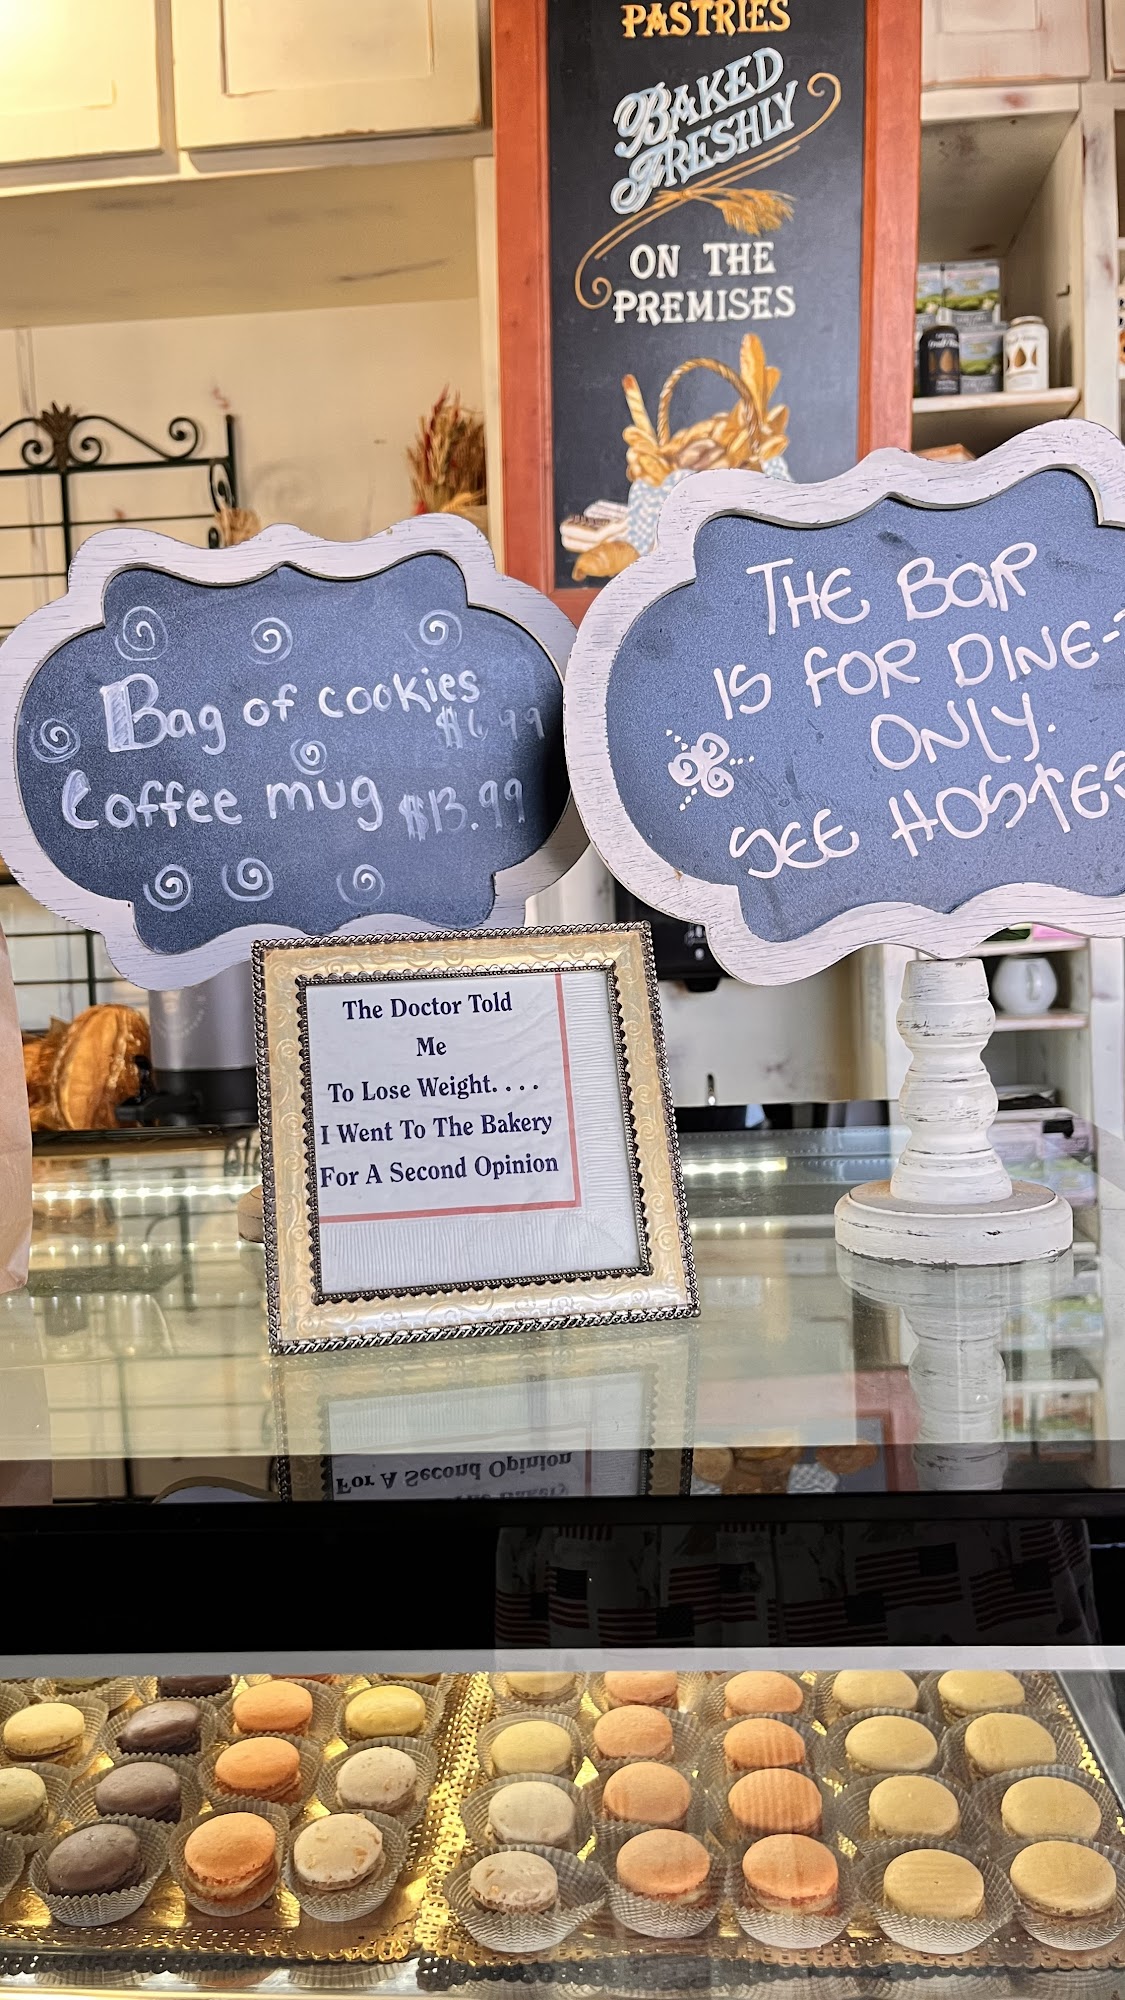 PASTRIES
BAKED
FRESHLY
ON THE
PREMISES
Bag of cookies
$6.99
Coffee mug $13.99
THE BAR
IS FOR DINE-
ONLY.
SEE HOSTES
The Doctor Told
Me
To Lose Weight. . . .
I Went To The Bakery
For A Second Opinion
For A Second Opinion